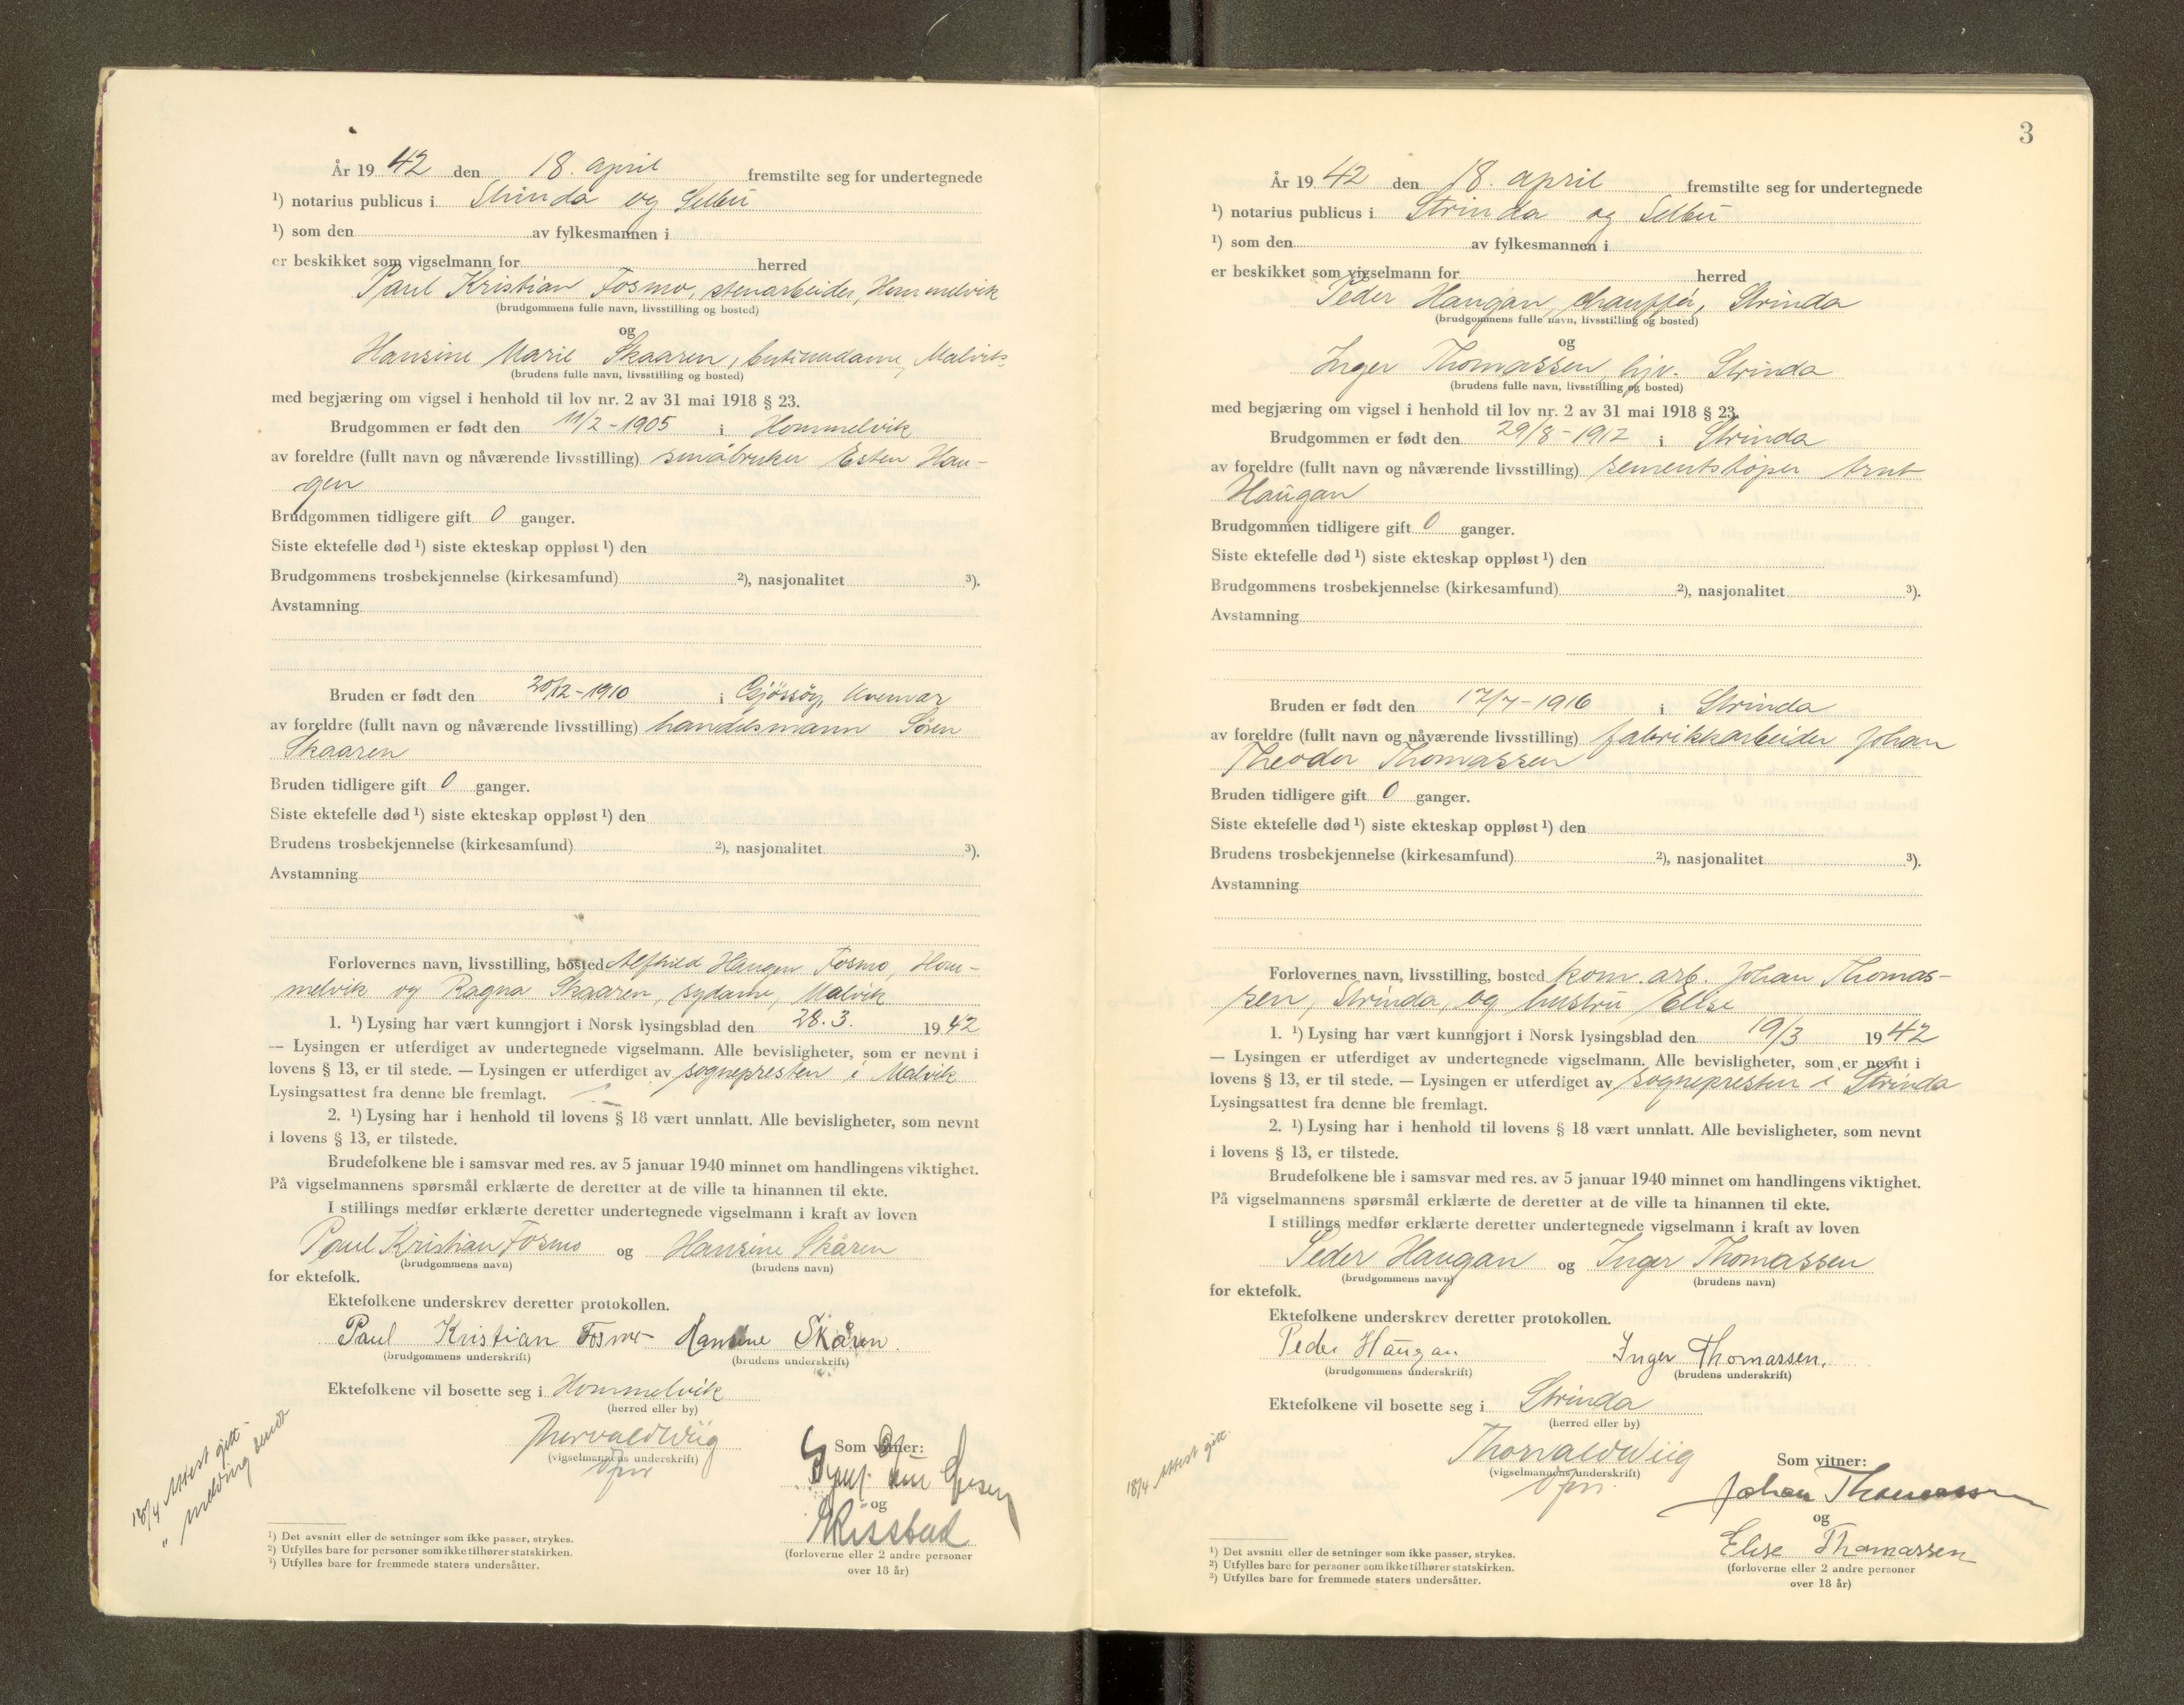 År 19 42 den 18. april fremstilte seg for undertegnede
¹) notarius publicus i Strinda og Selbu
¹) som den av fylkesmannen i
er beskikket som vigselmann for herred
Paul Kristian Fosmo, stenarbeider, Hommelvik
(brudgommens fulle navn, livsstilling og bosted)
og
Hansine Marie Skaaren, butikkdame, Malvik
(brudens fulle navn, livsstilling og bosted)
med begjæring om vigsel i henhold til lov nr. 2 av 31 mai 1918 § 23.
Brudgommen er født den 11/2-1905 i Hommelvik
av foreldre (fullt navn og nåværende livsstilling) småbruker Esten Hau-
gen
Brudgommen tidligere gift 0 ganger.
Siste ektefelle død ¹) siste ekteskap oppløst ¹) den
Brudgommens trosbekjennelse (kirkesamfund) ²), nasjonalitet ³).
Avstamning
Bruden er født den 20/12-1910 i
av foreldre (fullt navn og nåværende livsstilling) handelsmann Sören
Skaaren
Bruden tidligere gift 0 ganger.
Siste ektefelle død ¹) siste ekteskap oppløst ¹) den
Brudens trosbekjennelse (kirkesamfund) ²), nasjonalitet ³).
Avstamning
Forlovernes navn, livsstilling, bosted Alfhild Haugen Fosmo, Hom-
melvik og Ragna Skaaren, sydame, Malvik
1. ¹) Lysing har vært kunngjort i Norsk lysingsblad den 28.3. 19 42
— Lysingen er utferdiget av undertegnede vigselmann. Alle bevisligheter, som er nevnt i
lovens § 13, er til stede. — Lysingen er utferdiget av sognepresten i Malvik
Lysingsattest fra denne ble fremlagt.
2. ¹) Lysing har i henhold til lovens § 18 vært unnlatt. Alle bevisligheter, som nevnt
i lovens § 13, er tilstede.
Brudefolkene ble i samsvar med res. av 5 januar 1940 minnet om handlingens viktighet.
På vigselmannens spørsmål erklærte de deretter at de ville ta hinannen til ekte.
I stillings medfør erklærte deretter undertegnede vigselmann i kraft av loven
Paul Kristian Fosmo og Hansine Skåren
(brudgommens navn) (brudens navn)
for ektefolk.
Ektefolkene underskrev deretter protokollen.
Paul Kristian Fosmo Hansine Skåren.
(brudgommens underskrift) (brudens underskrift)
Ektefolkene vil bosette seg i Hommelvik
(herred eller by)
Thorvald Wiig Som vitner:
(vigselmannens underskrift)
og
(forloverne eller 2 andre personer
over 18 år)
18/4 Attest gitt
" melding sendt
¹) Det avsnitt eller de setninger som ikke passer, strykes.
²) Utfylles bare for personer som ikke tilhører statskirken.
³) Utfylles bare for fremmede staters undersåtter.
3
År 19 42 den 18. april fremstilte seg for undertegnede
¹) notarius publicus i Strinda og Selbu
¹) som den av fylkesmannen i
er beskikket som vigselmann for herred
Peder Haugan, chauffør, Strinda
(brudgommens fulle navn, livsstilling og bosted)
og
Inger Thomassen, hjv. Strinda
(brudens fulle navn, livsstilling og bosted)
med begjæring om vigsel i henhold til lov nr. 2 av 31 mai 1918 § 23.
Brudgommen er født den 29/8-1912 i Strinda
av foreldre (fullt navn og nåværende livsstilling) sementstöper Arnt
Haugan
Brudgommen tidligere gift 0 ganger.
Siste ektefelle død ¹) siste ekteskap oppløst ¹) den
Brudgommens trosbekjennelse (kirkesamfund) ²), nasjonalitet ³).
Avstamning
Bruden er født den 17/7-1916 i Strinda
av foreldre (fullt navn og nåværende livsstilling) fabrikkarbeider Johan
Theodor Thomassen
Bruden tidligere gift 0 ganger.
Siste ektefelle død ¹) siste ekteskap oppløst ¹) den
Brudens trosbekjennelse (kirkesamfund) ²), nasjonalitet ³).
Avstamning
Forlovernes navn, livsstilling, bosted kom. arb. Johan Thomas-
sen, Strinda, og hustru Elise
1. ¹) Lysing har vært kunngjort i Norsk lysingsblad den 19/3 19 42
— Lysingen er utferdiget av undertegnede vigselmann. Alle bevisligheter, som er nevnt i
lovens § 13, er til stede. — Lysingen er utferdiget av sognepresten i Strinda
Lysingsattest fra denne ble fremlagt.
2. ¹) Lysing har i henhold til lovens § 18 vært unnlatt. Alle bevisligheter, som nevnt
i lovens § 13, er tilstede.
Brudefolkene ble i samsvar med res. av 5 januar 1940 minnet om handlingens viktighet.
På vigselmannens spørsmål erklærte de deretter at de ville ta hinannen til ekte.
I stillings medfør erklærte deretter undertegnede vigselmann i kraft av loven
Peder Haugan og Inger Thomassen
(brudgommens navn) (brudens navn)
for ektefolk.
Ektefolkene underskrev deretter protokollen.
Peder Haugan Inger Thomassen.
(brudgommens underskrift) (brudens underskrift)
Ektefolkene vil bosette seg i Strinda
(herred eller by)
Thorvald Wiig Som vitner:
(vigselmannens underskrift)
Johan Thomassen
og
Elise Thomassen
(forloverne eller 2 andre personer
over 18 år)
18/4 Attest gitt.
¹) Det avsnitt eller de setninger som ikke passer, strykes.
²) Utfylles bare for personer som ikke tilhører statskirken.
³) Utfylles bare for fremmede staters undersåtter.